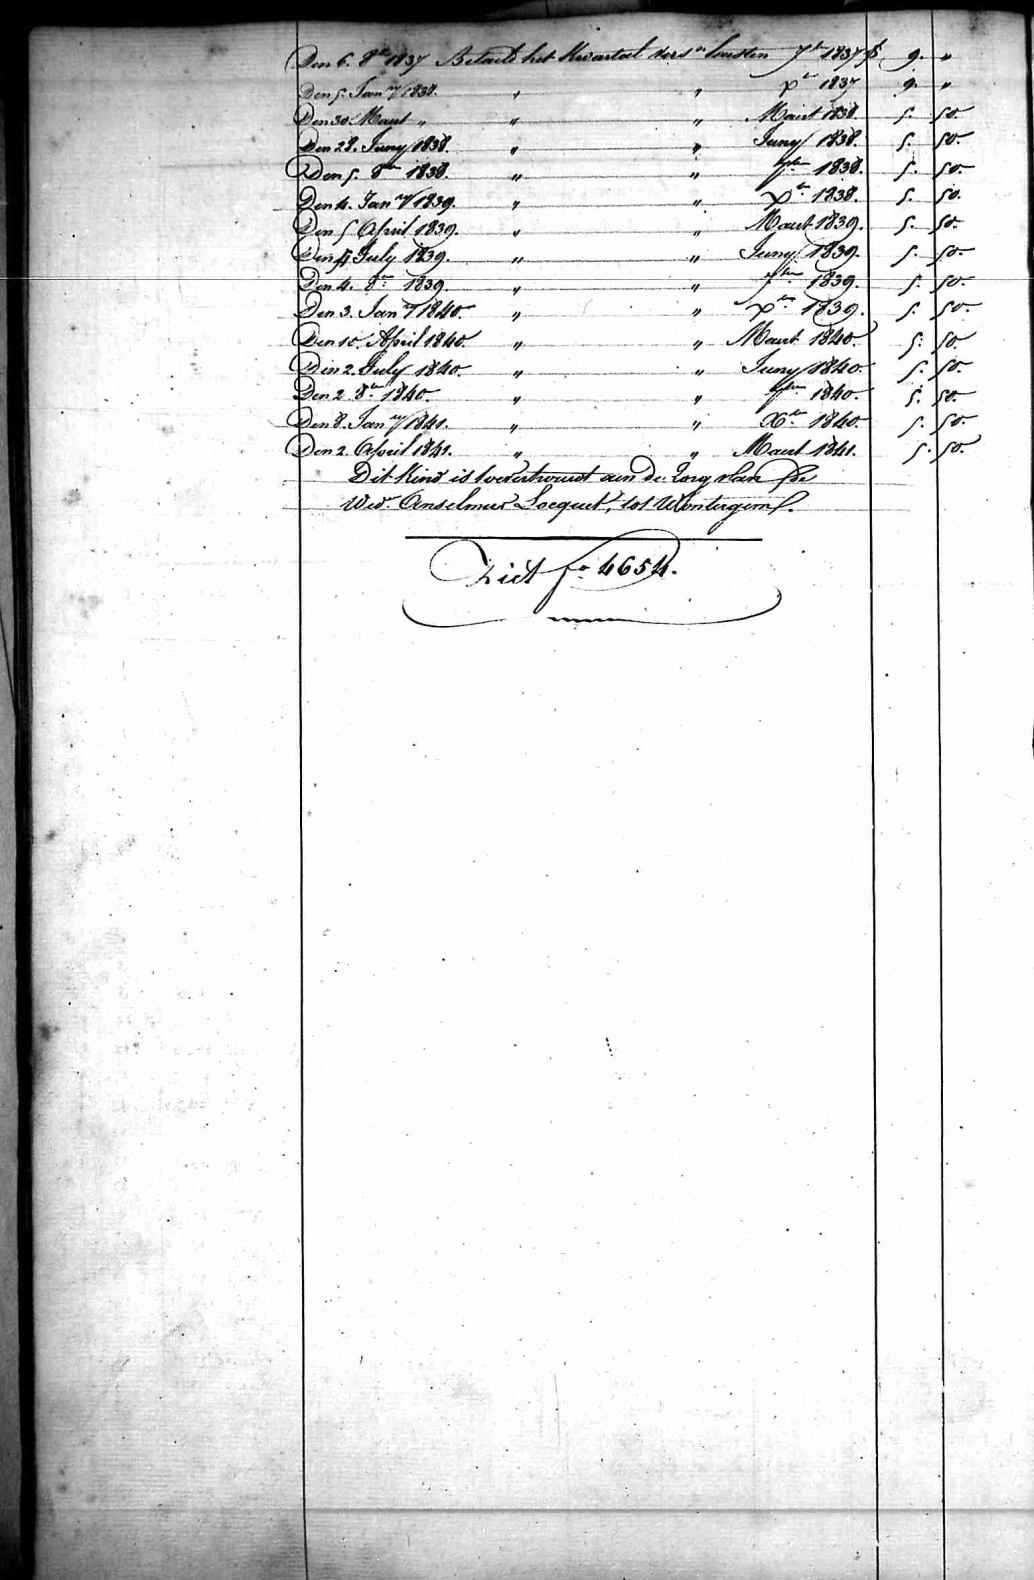 Den 6. 8er 1837 Betaeld het Kwartael vers.n lausten 7er 1837 f 9. "
Den 5. Jan.ry 1838. " " Xer 1837 9. "
Den 30. Maert " " " Maert 1838. 5. 50.
Den 28. Juny 1838. " " Juny 1838. 5. 50.
Den 5. 8er 1838. " " 7ber 1838. 5. 50.
Den 4. Jan.ry 1839. " " Xer 1838. 5. 50.
Den 5 April 1839. " " Maert 1839. 5. 50.
Den 5 July 1839. " " Juny 1839. 5. 50.
Den 4. 8er 1839. " " 7ber 1839. 5. 50.
Den 3. Jan.ry 1840. " " Xber 1839. 5. 50.
Den 10. April 1840. " " Maert 1840. 5. 50.
Den 2. July 1840. " " Juny 1840. 5. 50.
Den 2 8er 1840. " " 7ber 1840. 5. 50.
Den 8. Jan.ry 1841. " " Xer 1840. 5. 50.
Den 2. April 1841. " " Maert 1841. 5. 50.
Dit Kind is toevertrouwt aen de zorg van de
Wed.e Anselmus Locquet, tot Wontergem.
Ziet fo 4654.